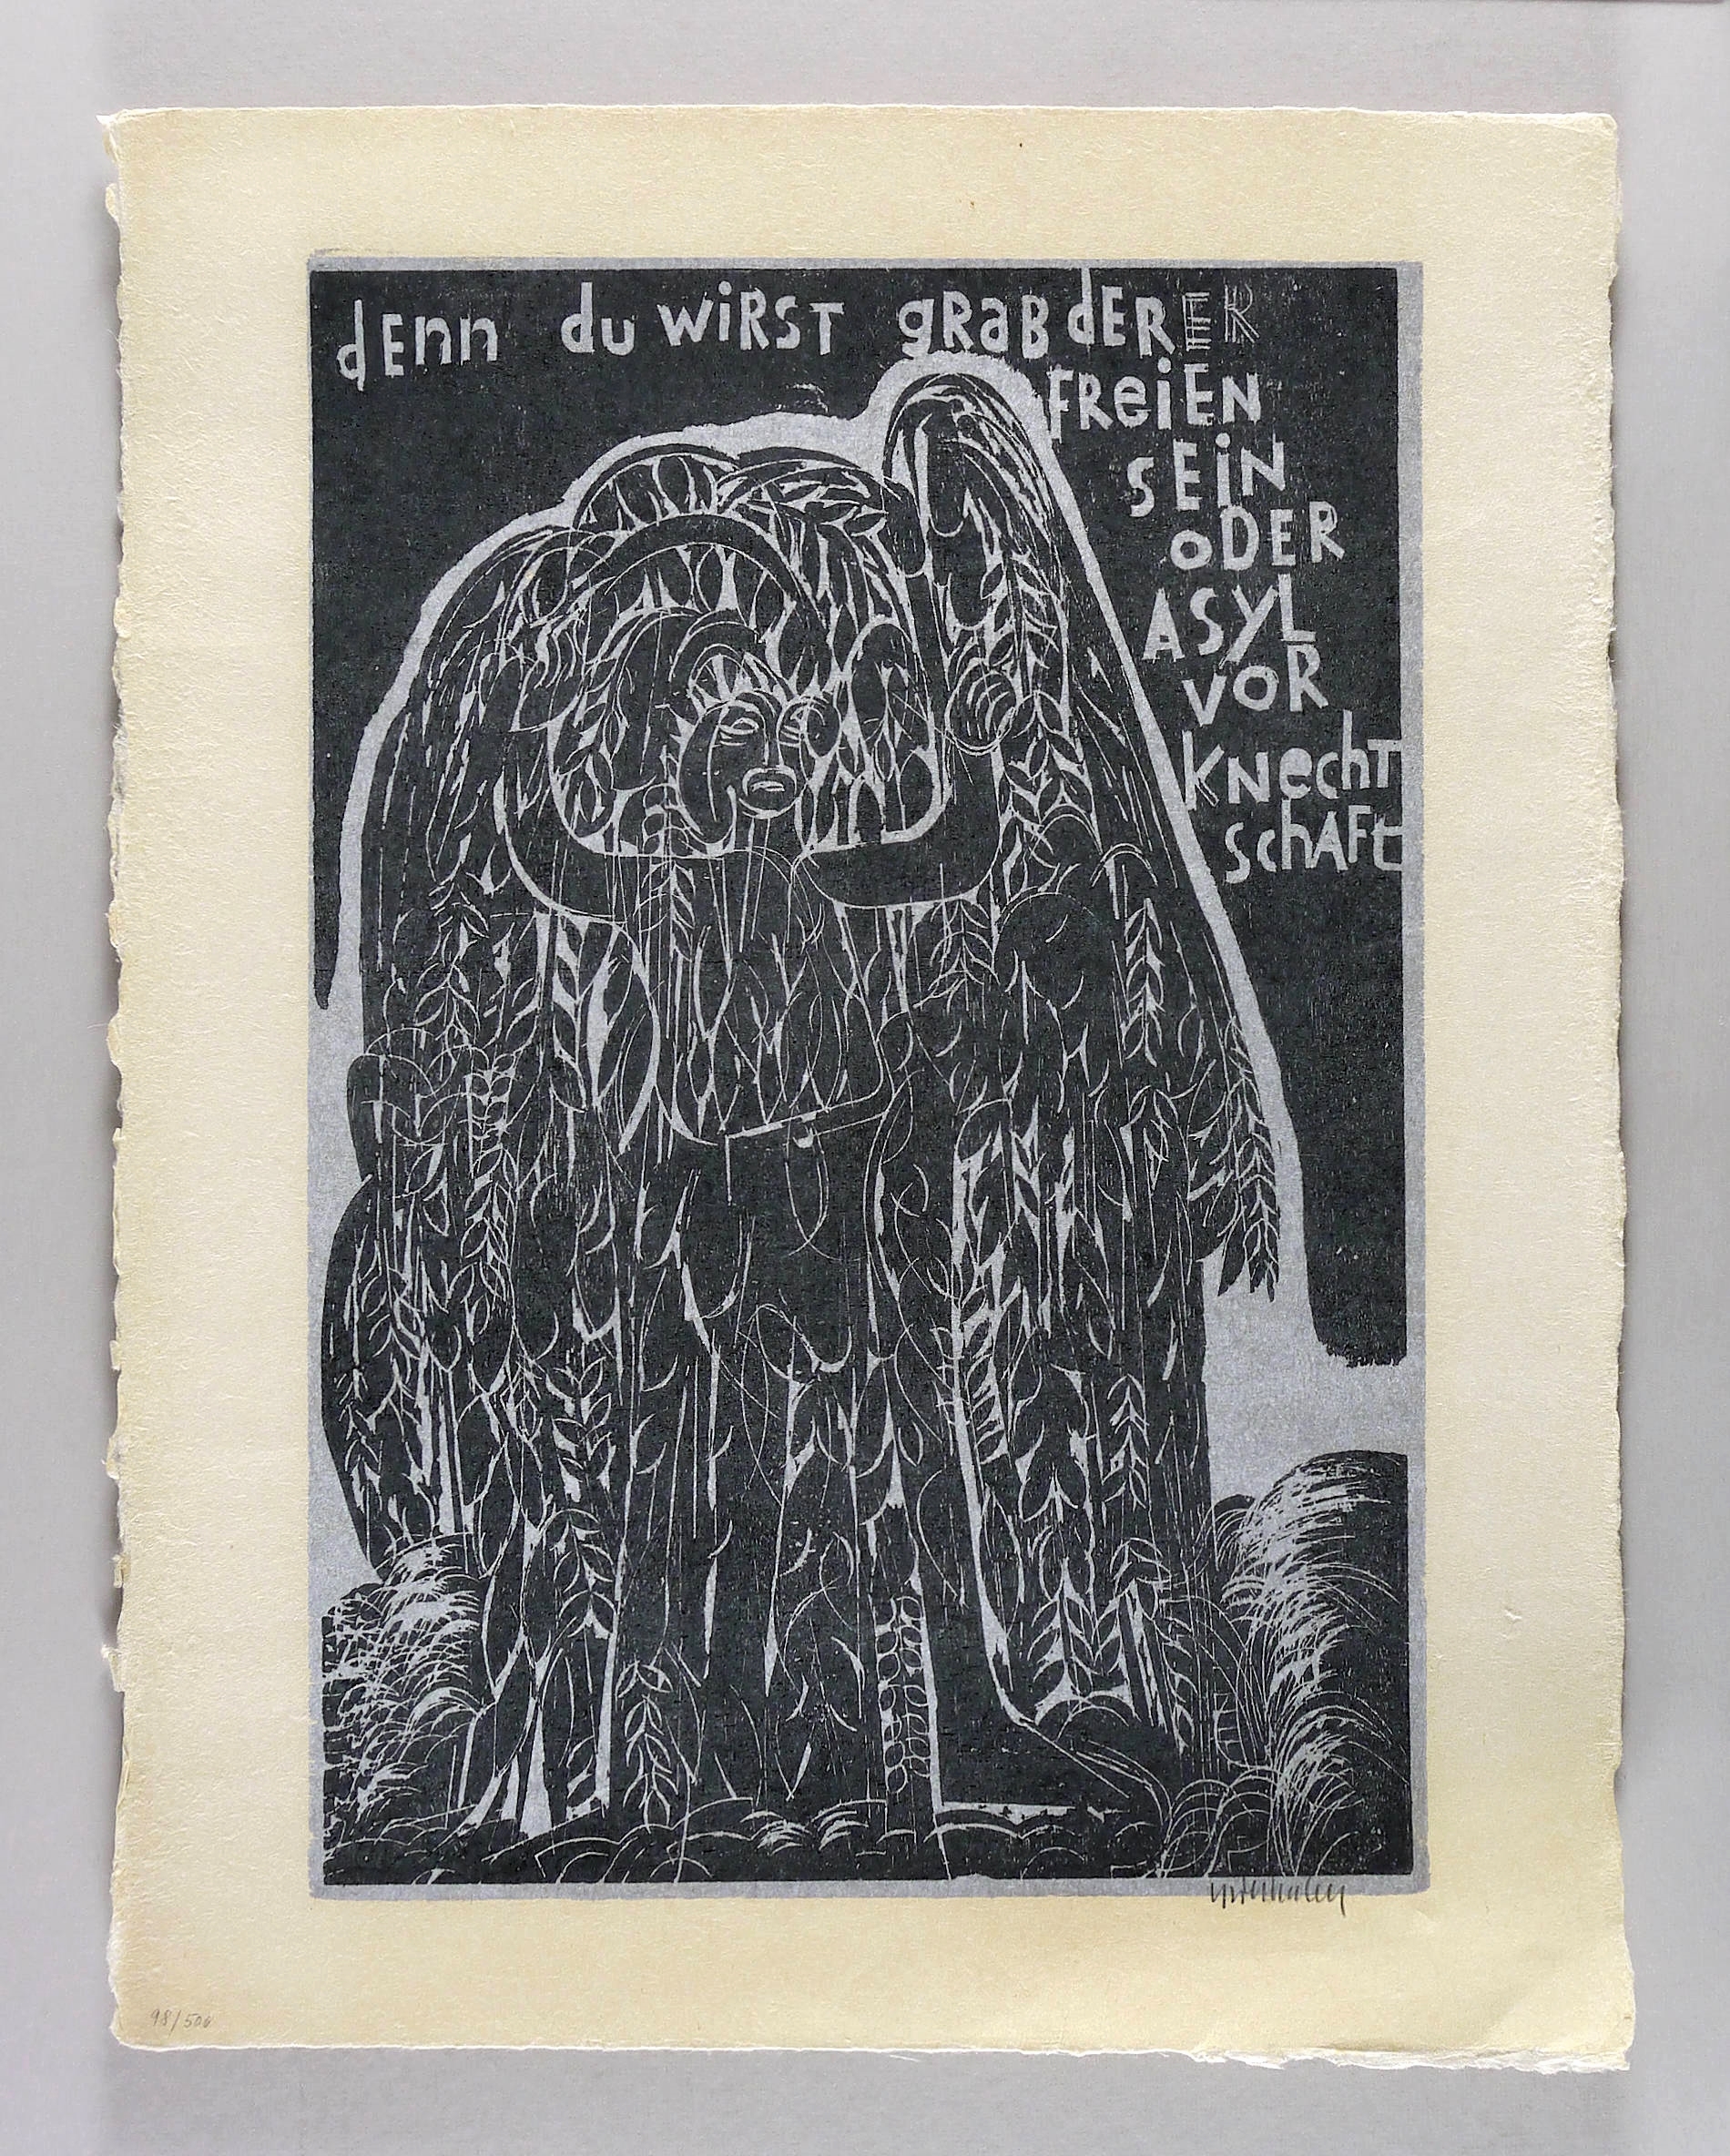 dEnn du wiRST gRaB dERER
FReiEN
SEiN
oDER
ASyL
VoR
KNechT
SchAFt
98/500